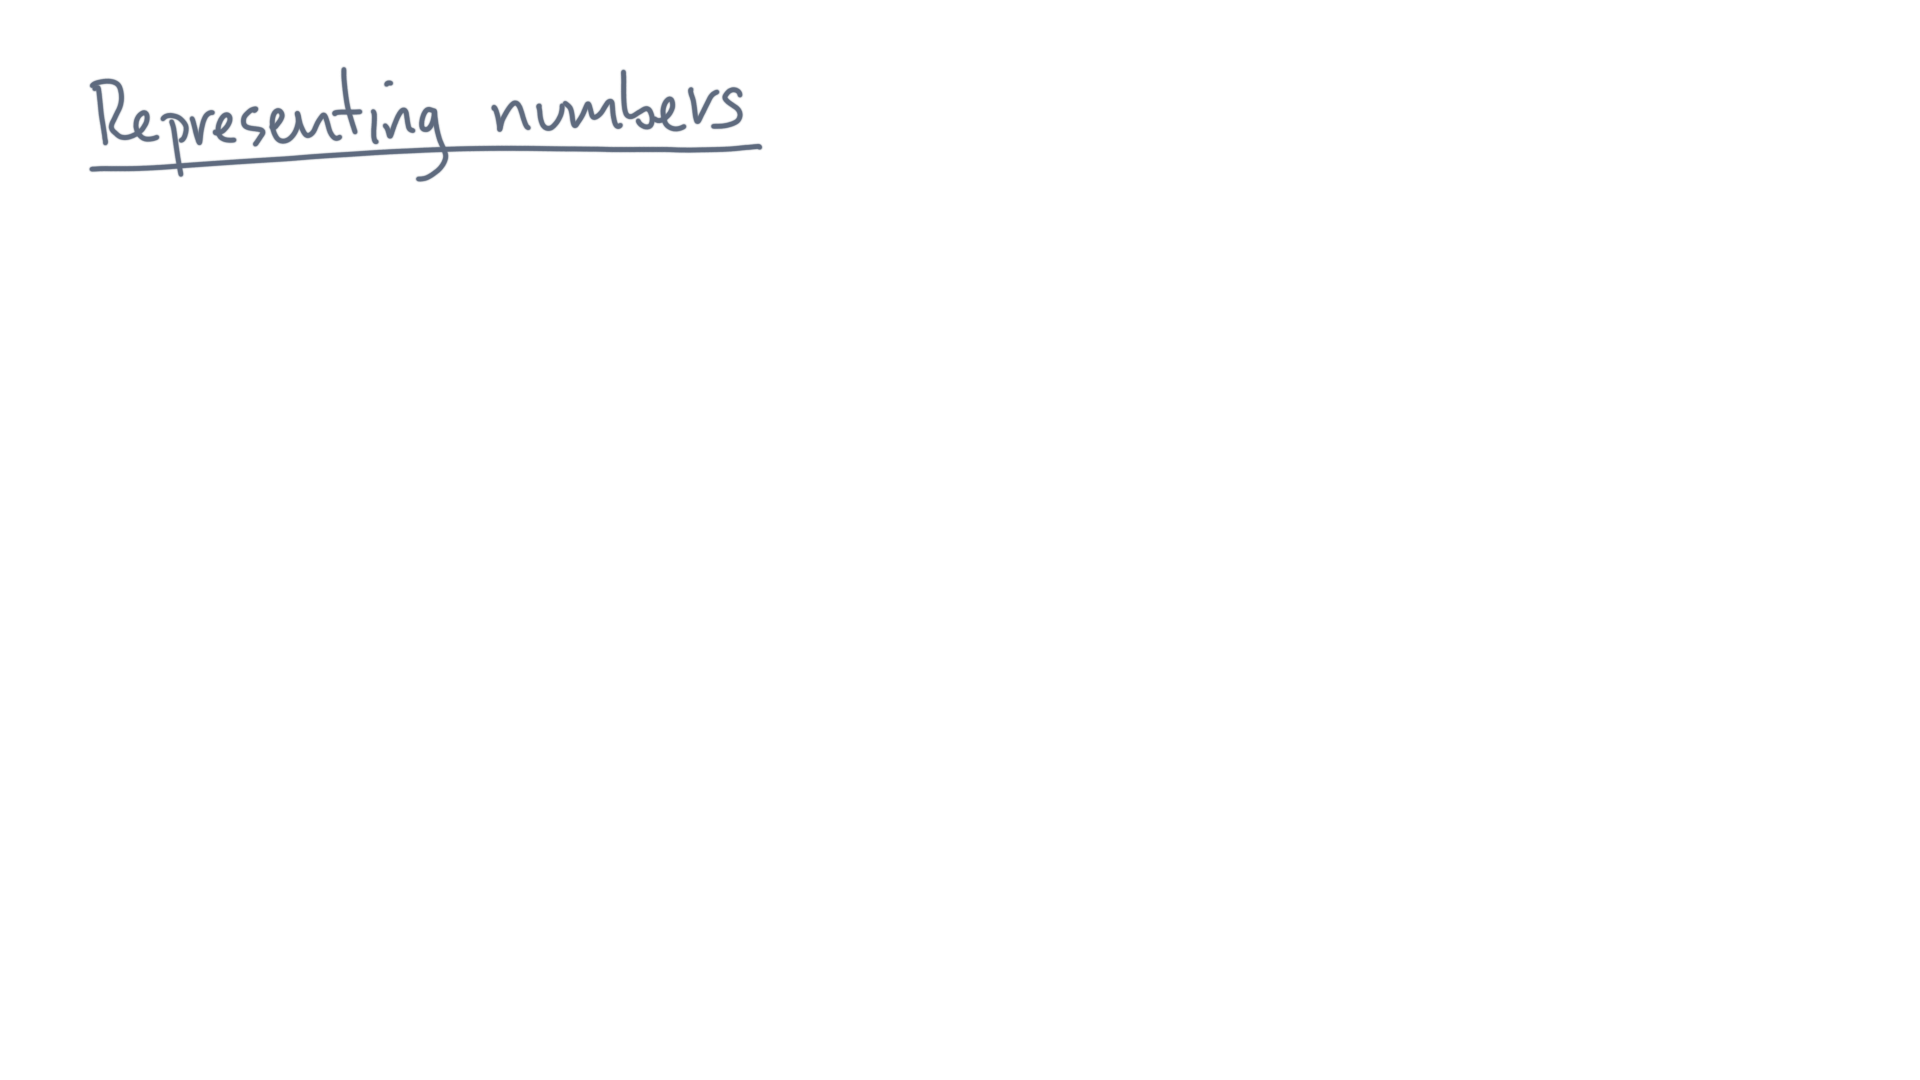 Representing numbers